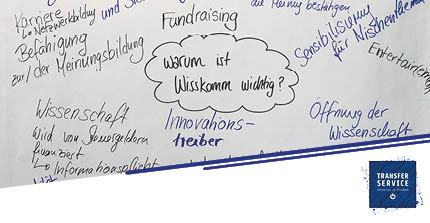 Karriere
↳ Netzwerkbildung und
Fundraising
die Meinung bestätigen
Befähigung
zur / der Meinungsbildung
Sensibilisierung
für Nischenthemen
Entertainment
Warum ist
Wisskomm wichtig?
Wissenschaft
wird von Steuergeldern
finanziert
↳ Informationspflicht
Innovations-
treiber
Öffnung der
Wissenschaft
TRANSFER
SERVICE